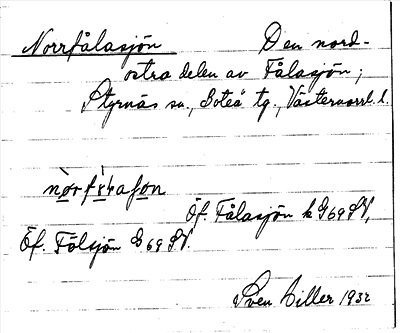 Norrfålasjön Den nord-
östra delen av Fålasjön;
Styrnäs sn., Boteå tg., Västernorrl. l.
Öf. Fålasjön k G69SV,
Ef. Fölsjön G69SV.
Sven Hiller 1932